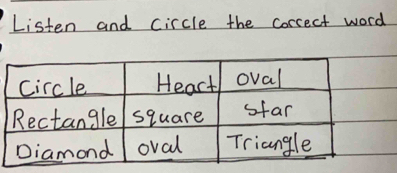 Listen and circle the correct word
Circle Heart oval
Rectangle square star
Diamond oval Triangle